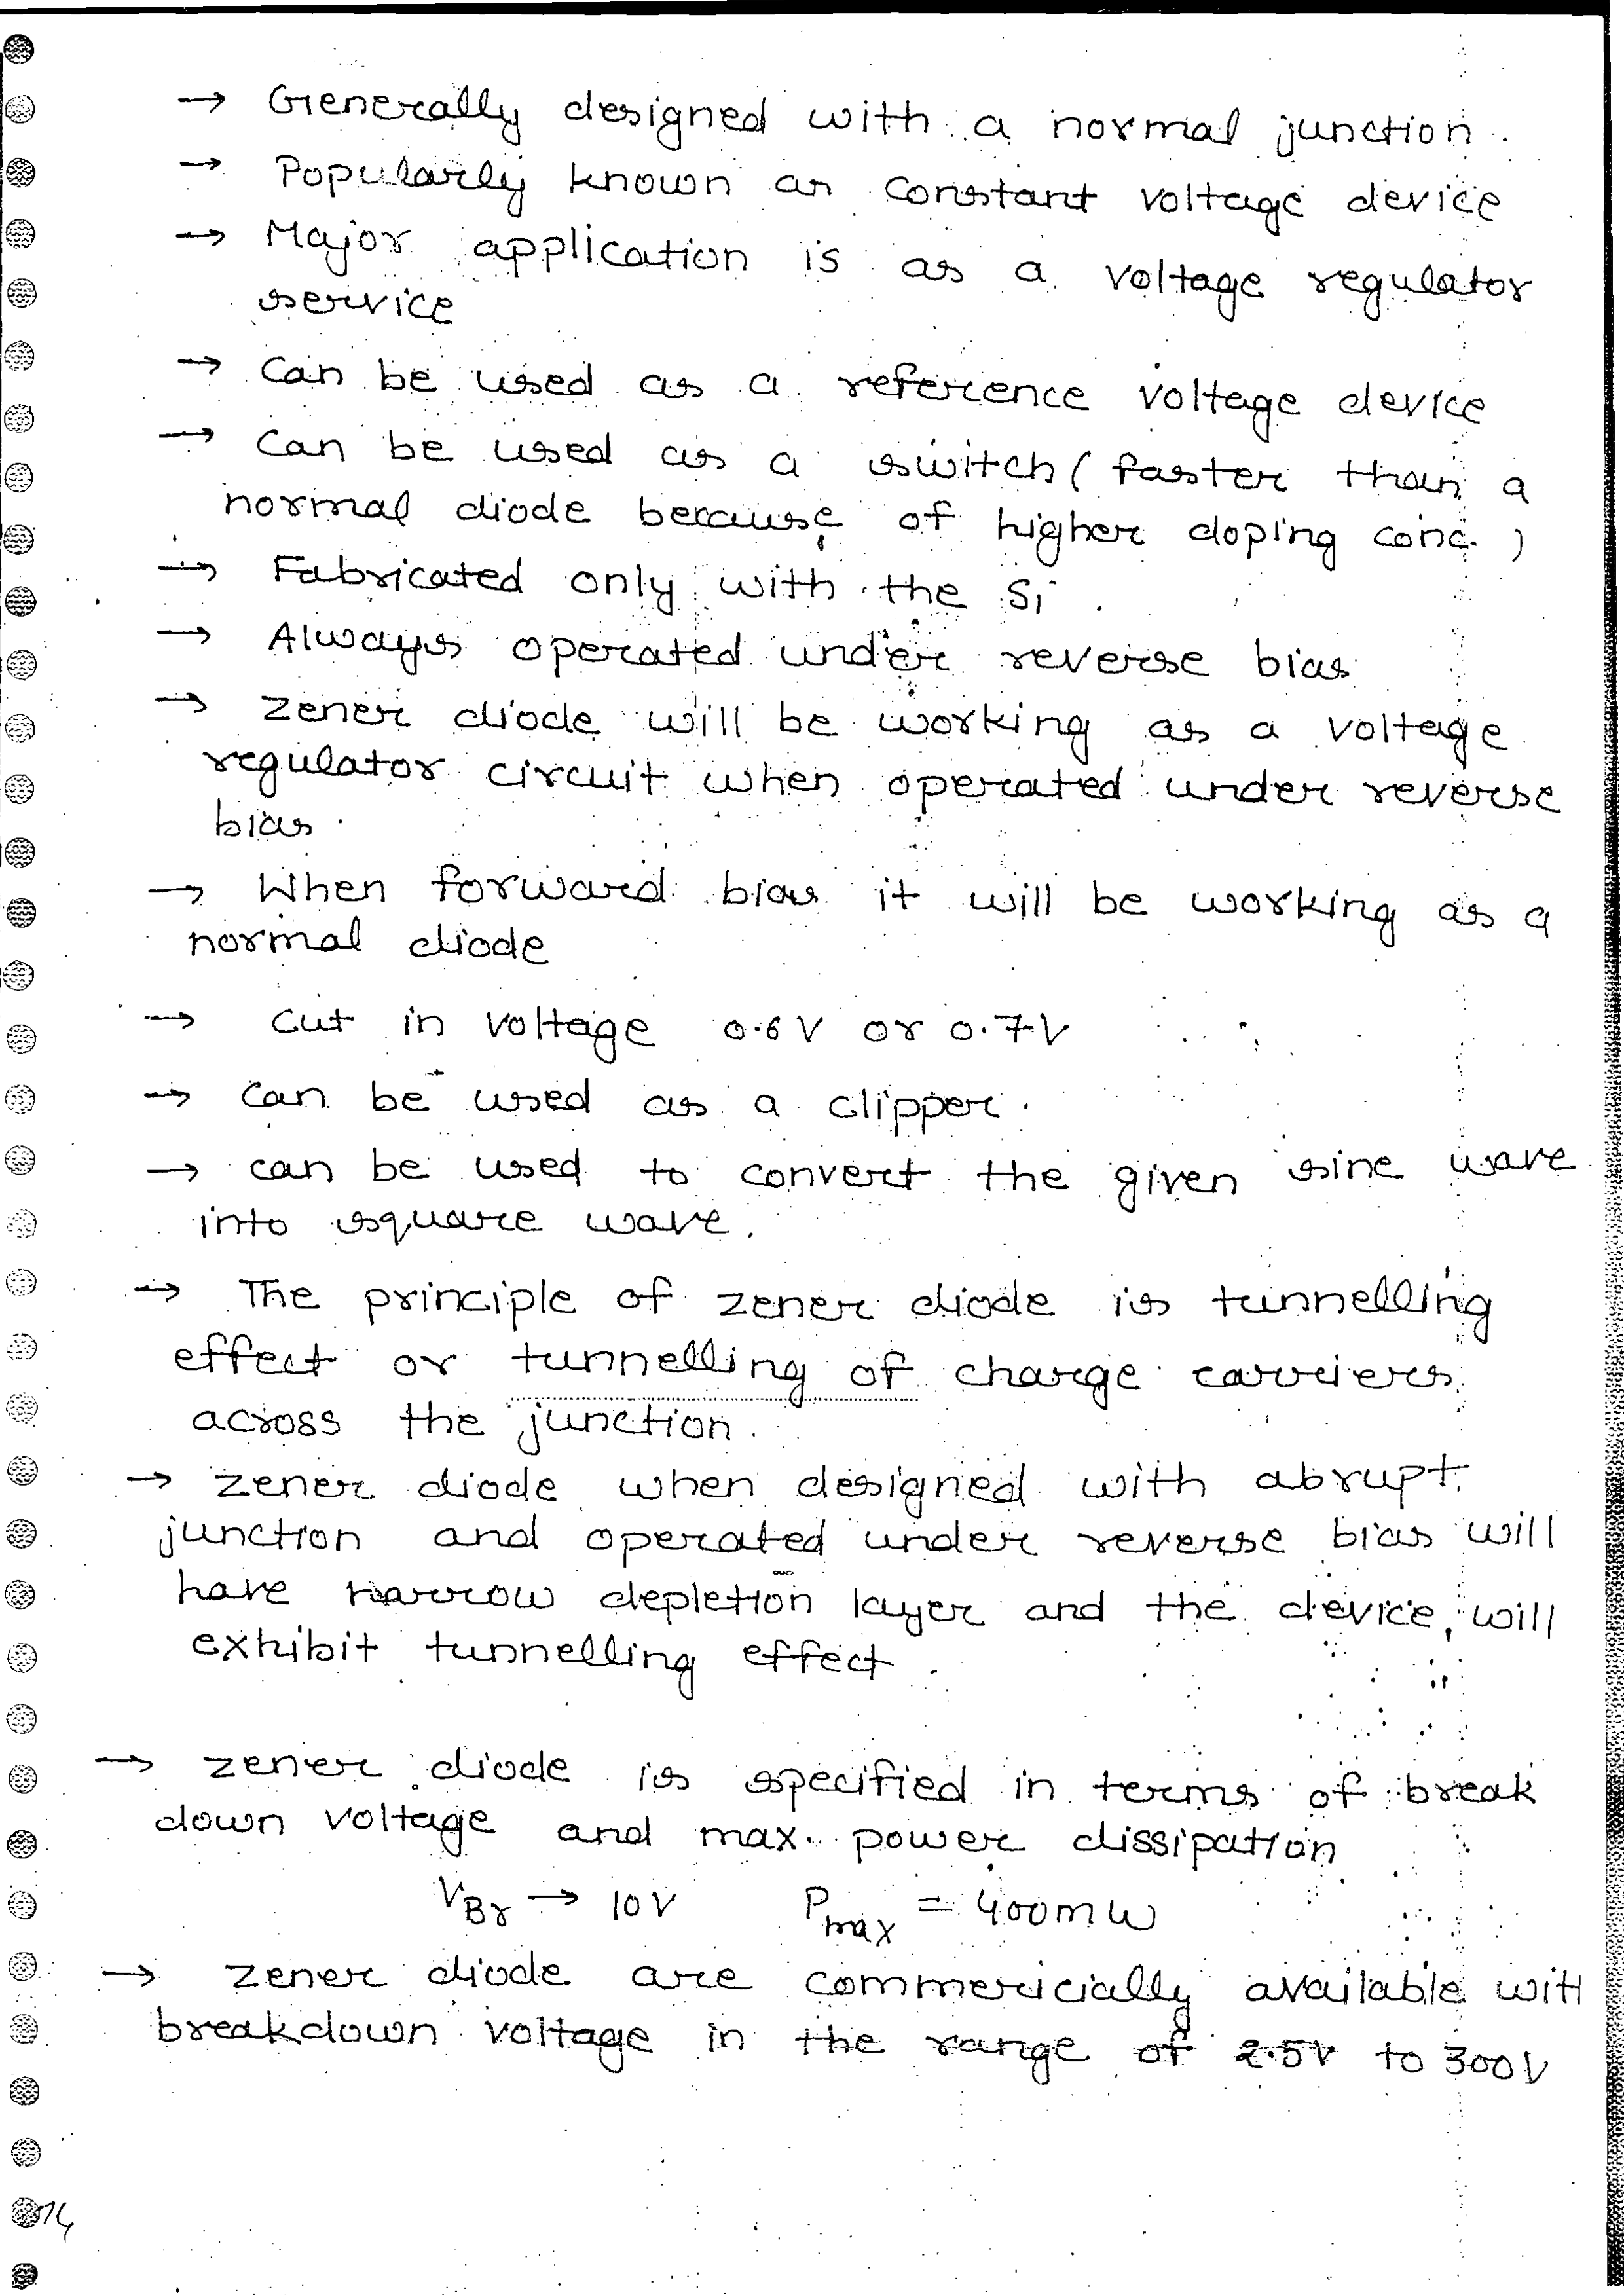 → Generally designed with a normal junction.
→ Popularly known as constant voltage device
→ Major application is as a voltage regulator
service
→ Can be used as a reference voltage device
→ Can be used as a switch (faster than a
normal diode because of higher doping conc.)
→ Fabricated only with the Si.
→ Always operated under reverse bias
→ zener diode will be working as a voltage
regulator circuit when operated under reverse
bias.
→ When forward bias it will be working as a
normal diode
→ cut in voltage 0.6V or 0.7V
→ can be used as a clipper.
→ can be used to convert the given sine wave
into square wave.
→ The principle of zener diode is tunnelling
effect or tunnelling of charge carriers
across the junction.
→ zener diode when designed with abrupt
junction and operated under reverse bias will
have narrow depletion layer and the device will
exhibit tunnelling effect.
→ zener diode is specified in terms of break
down voltage and max. power dissipation
VBr → 10V Pmax = 400mW
→ zener diode are commericially available with
breakdown voltage in the range of 2.5V to 300V